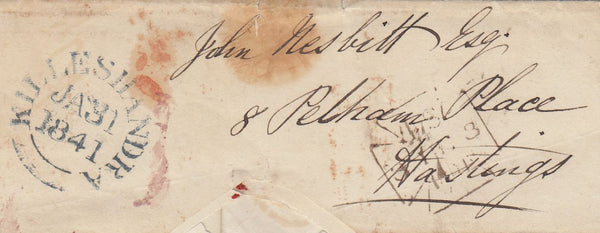 John Nesbitt Esq:
8 Pelham Place
Hastings
KILLESHANDRA
JA31
1841